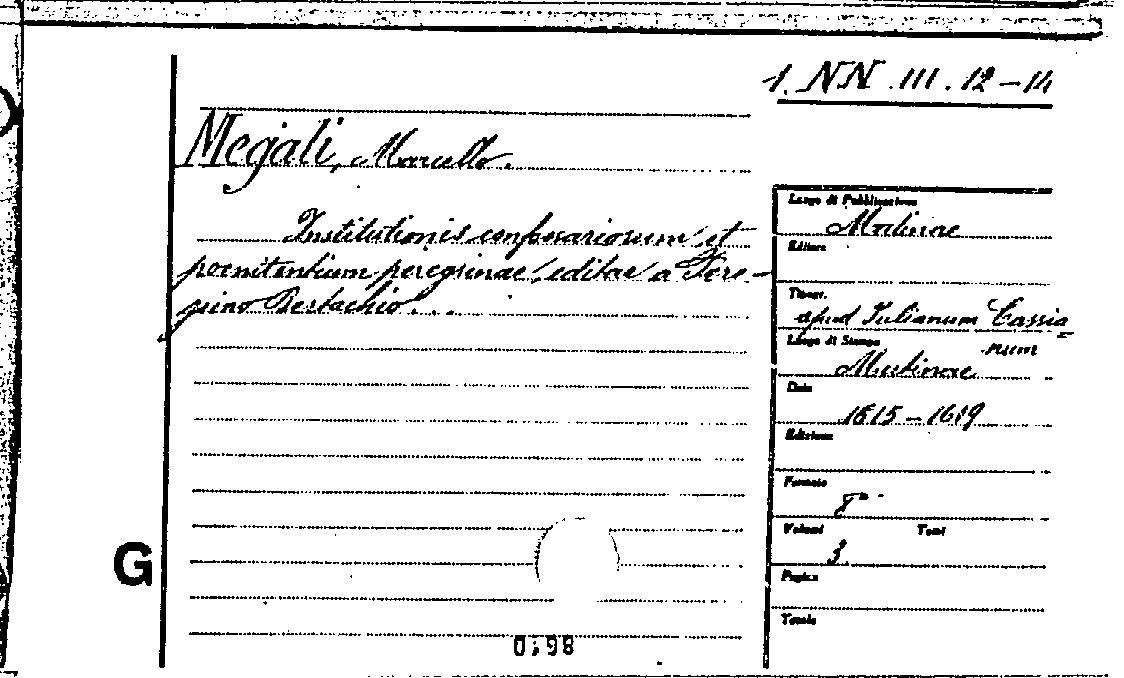 1. NN. III. 12-14
Megali, Marcello.
Institutionis confessariorum et
poenitentium peregrinae, editae a Fere-
pino Bertachio...
Luogo di Pubblicazione
Mutinae
Editore
Tipogr.
apud Julianum Cassia=
num
Luogo di Stampa
Mutinae
Data
1615-1619
Edizione
Formato
8°.
Volumi Tomi
3.
Pagine
Tavole
G